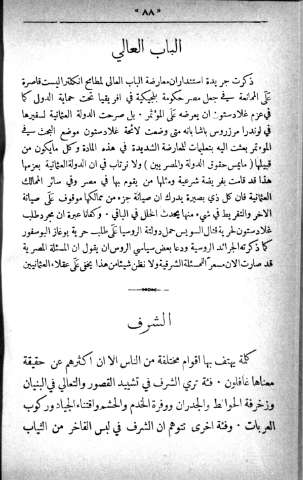 « ٨٨ »
الباب العالي
ذكرت جريدة استنداران معارضة الباب العالى لمطامح انكلترا ليست قاصرة
على الممانعة في جعل مصر حكومة بلجيكية في افريقيا تحت حماية الدولى كما
في عزم غلادستون ان يعرضه على المؤتمر بل صرحت الدولة العثمانية لسفيرها
في لوندرا مرزروس باشا بانه متى وضعت لائحة غلادستون موضع البحث في
المؤتمر بعثت اليه بتعليمات للمعارضة الشديدة في هذه المادة وكل ما يكون من
قبيلها ( مايمس حقوق الدولة والمصريين ) ولا نرتاب في ان الدولة العثمانية بعزمها
هذا قد قامت بفريضة شرعية ومثلها من يقوم بها في مصر وفي سائر الممالك
العثمانية فان كل ذي بصيرة يدرك ان صيانة جزء من ممالكها موقوف على صيانة
الاخر والتفريط في شيء منها يحدث الخلل في الباقي . وكفانا عبرة ان مجرد طلب
غلادستون لحرية قنال السويس حمل دولتة الروسيا على طلب حرية بوغاز البوسفور
كما ذكرته الجرائد الروسية ودعا بعض سياسي الروس ان يقول ان المسئلة المصرية
قد صارت الان مسمر المسئلة الشرقية ولا نظن شيئا من هذا يخفى على عقلاء العثمانيين
الشرف
كلمة يهتف بها اقوام مختلفة من الناس الا ان اكثرهم عن حقيقة
معناها غافلون . فئة ترى الشرف في تشييد القصور والتعالي في البنيان
وزخرفة الحوائط والجدران ووفرة الخدم والحشم واقتناء الجياد وركوب
العربات . وفئة اخرى تتوهم ان الشرف في لبس الفاخر من الثياب